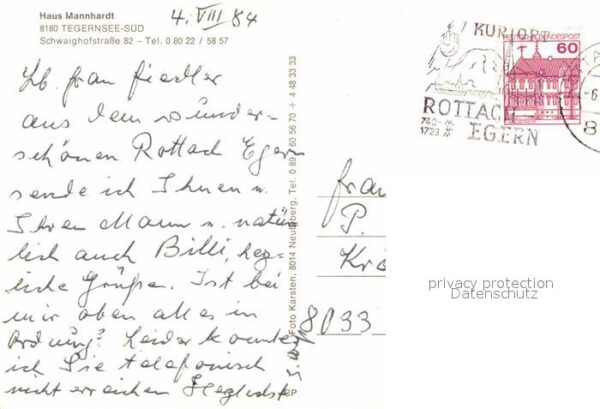 Haus Mannhardt
8180 TEGERNSEE-SÜD
Schwaighofstraße 82 – Tel. 0 80 22 / 58 57
4. VIII 84
Lb. Frau Fiedler
aus dem wunder-
schönen Rottach Egern
sende ich Ihnen u.
Ihren Mann u. natür
lich auch Billi, herz-
liche Grüße. Ist bei
mir oben alles in
Ordnung? Leider konnte
ich Sie telefonisch
nicht erreichen Herzlichst
Foto Karsten, 8014 Neubiberg, Tel. 0 89 / 60 56 70 + 4 48 33 33
KURORT
ROTTACH
EGERN
740-
1723 M
DEUTSCHE BUNDESPOST
60
Frau
P.
Krö
8033
privacy protection
Datenschutz